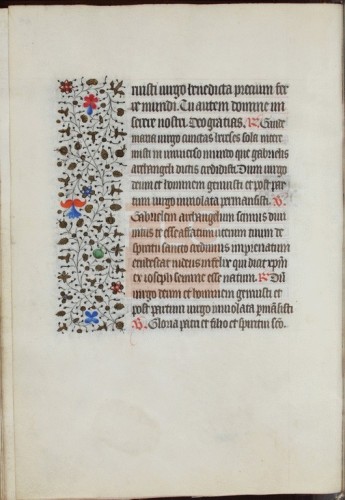 nuisti uirgo benedicta precium sex
u mundi. Tu autem domine mi
serere nostri. Deo gracias. R Gaude
maria uirgo cunctas hereses sola intere
misti in uniuerso mundo que gabrielis
archangeli dictis credidisti. Dum uirgo
deum et hominem genuisti et post par
tum uirgo inuiolata permansisti. V
Gabrielem archangelum scimus diui
nitus te esse affatum uterum tuum de
spiritu sancto credimus impregnatum
erubescat iudeus infelix qui dicit xpm
ex ioseph semine esse natum. R Dum
uirgo deum et hominem genuisti et
post partum uirgo inuiolata pmansisti
V Gloria patri et filio et spiritui sco.